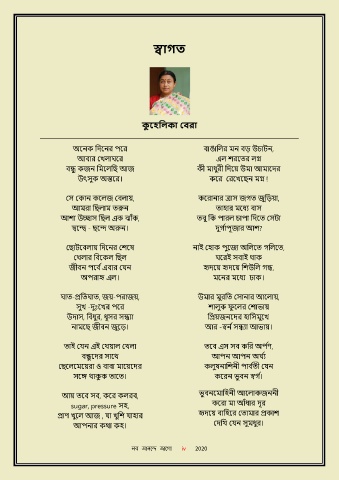 স্বাগত
কুহেলিকা বেরা
অনেক দিনের পরে
আবার খেলাঘরে
বন্ধু কজন মিলেছি আজ
উৎসুক অন্তরে।
সে কোন কলেজ বেলায়,
আমরা ছিলাম তরুন
আশা উচ্ছাস ছিল এক ঝাঁক,
দ্বন্দ্বে - ছন্দে অরুন।
ছোটবেলায় দিনের শেষে
খেলার বিকেল ছিল
জীবন পর্বে এবার যেন
অপরাহ্ন এল।
ঘাত-প্রতিঘাত, জয়-পরাজয়,
সুখ -দুঃখের পরে
উদাস, বিধুর, ধূসর সন্ধ্যা
নামছে জীবন জুড়ে।
তাই যেন এই খেয়াল খেলা
বন্ধুদের সাথে
ছেলেমেয়েরা ও ব্যস্ত মায়েদের
সঙ্গে থাকুক তাতে।
আয় তবে সব, করে কলরব,
sugar, pressure সহ,
প্রাণ খুলে আজ , যা খুশি যাহার
আপনার কথা কহ।
বাঙালির মন বড় উচাটন,
এল শরতের লগ্ন
কী মাধুরী দিয়ে উমা আমাদের
করে রেখেছেন মগ্ন !
করোনার ত্রাস জগত জুড়িয়া,
তাহার মধ্যে বাস
তবু কি পারল চাপা দিতে সেটা
দুর্গাপূজার আশ?
নাই হোক পুজো অলিতে গলিতে,
ঘরেই সবাই থাক
হৃদয়ে হৃদয়ে শিউলি গন্ধ,
মনের মধ্যে ঢাক।
উমার মুরতি সোনার আলোয়,
শালুক ফুলের শোভায়
প্রিয়জনদের হাসিমুখে
আর -স্বর্ন সন্ধ্যা আভায়।
তবে এস সব করি অর্পণ,
আপন আপন অর্ঘ্য
কলুষনাশিনী পার্বতী যেন
করেন ভুবন স্বর্গ।
ভুবনমোহিনী আলোকজননী
করো মা আঁধার দূর
হৃদয়ে বাহিরে তোমার প্রকাশ
দেখি যেন সুমধুর।
নব আনন্দে জাগো iv 2020